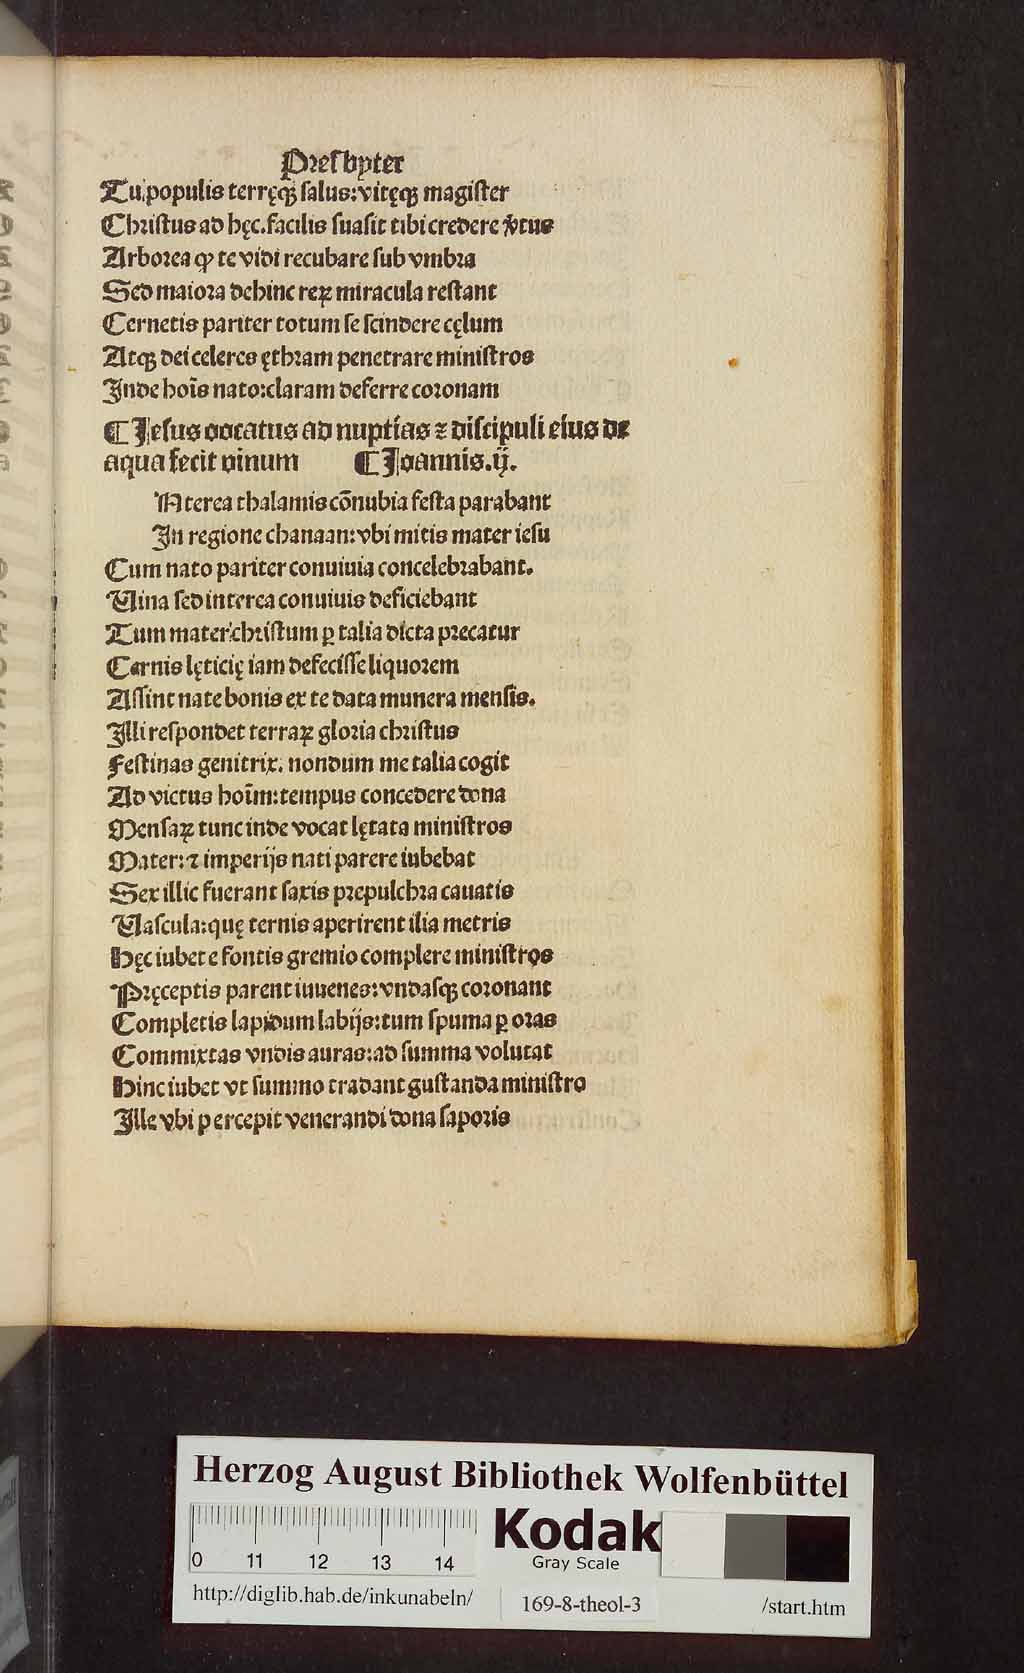 Presbyter
Tu populis terręqꝫ salus: vitęqꝫ magister
Christus ad hęc. facilis suasit tibi credere v̾tus
Arborea ꝙ te vidi recubare sub vmbra
Sed maiora dehinc reꝝ miracula restant
Cernetis pariter totum se scindere cęlum
Atqꝫ dei celeres ęthram penetrare ministros
Inde hoīs nato: claram deferre coronam
¶ Jesus vocatus ad nuptias ⁊ discipuli eius de
aqua fecit vinum ¶ Joannis. ij.
Nterea thalamis cōnubia festa parabant
In regione chanaan: vbi mitis mater iesu
Cum nato pariter conuiuia concelebrabant.
Uina sed interea conuiuis deficiebant
Tum mater christum ꝑ talia dicta precatur
Cernis lęticię iam defecisse liquorem
Assint nate bonis ex te data munera mensis.
Illi respondet terraꝝ gloria christus
Festinas genitrix. nondum me talia cogit
Ad victus hoīm: tempus concedere dona
Mensaꝝ tunc inde vocat lętata ministros
Mater: ⁊ imperijs nati parere iubebat
Sex illic fuerant saxis prepulchra cauatis
Uascula: quę ternis aperirent ilia metris
Hęc iubet e fontis gremio complere ministros
Pręceptis parent iuuenes: vndasqꝫ coronant
Completis lapidum labijs: tum spuma ꝑ oras
Commixtas vndis auras: ad summa volutat
Hinc iubet vt summo tradant gustanda ministro
Ille vbi percepit venerandi dona saporis
Herzog August Bibliothek Wolfenbüttel
0 11 12 13 14
Kodak
Gray Scale
http://diglib.hab.de/inkunabeln/ 169-8-theol-3 /start.htm